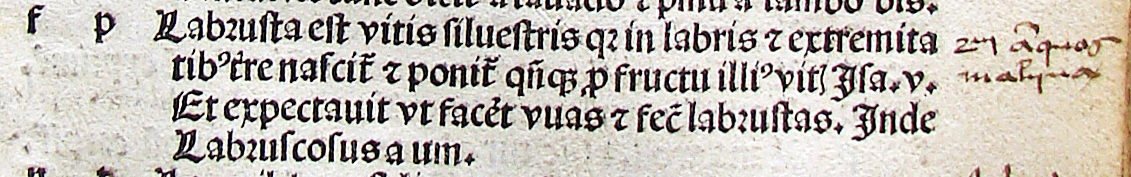 f p Labrusta est vitis siluestris qꝛ in labris ⁊ extremita
tibꝰ tr̄e nascit̄ ⁊ ponit̄ qñqꝫ ꝓ fructu illiꝰ vitꝭ Isa. v.
Et expectauit vt facēt vuas ⁊ fec̄ labrustas. Inde
Labruscosus a um.